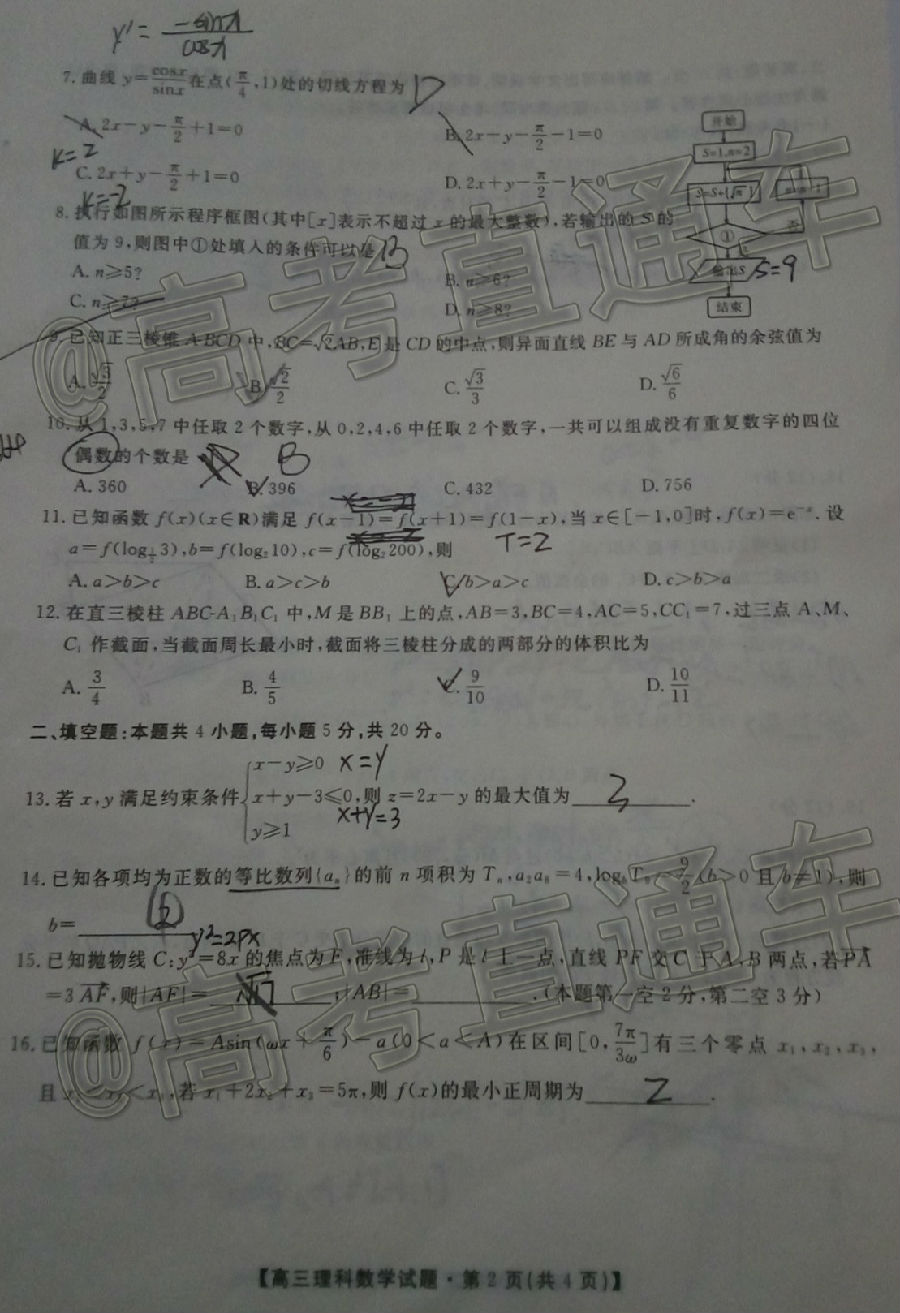 y′= -sinx/cosx
7.曲线 y=cosx/sinx 在点(π/4,1)处的切线方程为 D
A. 2x-y-π/2+1=0
B. 2x-y-π/2-1=0
K=2
C. 2x+y-π/2+1=0
D. 2x+y-π/2-1=0
K=-2
8.执行如图所示程序框图(其中[x]表示不超过 x 的最大整数),若输出的 S 的
值为 9,则图中①处填入的条件可以是 B
A. n≥5?
B. n≥6?
C. n≥7?
D. n≥8?
开始
S=1,n=2
S=S+[√n]
①
否
输出S
S=9
结束
9.已知正三棱锥 A-BCD 中,BC=√2AB,E 是 CD 的中点,则异面直线 BE 与 AD 所成角的余弦值为
A. √3/2
B. √2/2
C. √3/3
D. √6/6
10.从 1,3,5,7 中任取 2 个数字,从 0,2,4,6 中任取 2 个数字,一共可以组成没有重复数字的四位
偶数的个数是 B
A. 360
B. 396
C. 432
D. 756
11.已知函数 f(x)(x∈R)满足 f(x-1)=f(x+1)=f(1-x),当 x∈[-1,0]时,f(x)=e⁻ˣ. 设
a=f(log_{1/2}3),b=f(log₂10),c=f(log₂200),则
T=2
A. a>b>c
B. a>c>b
C. b>a>c
D. c>b>a
12.在直三棱柱 ABC-A₁B₁C₁ 中,M 是 BB₁ 上的点,AB=3,BC=4,AC=5,CC₁=7,过三点 A、M、
C₁ 作截面,当截面周长最小时,截面将三棱柱分成的两部分的体积比为
A. 3/4
B. 4/5
C. 9/10
D. 10/11
二、填空题:本题共 4 小题,每小题 5 分,共 20 分。
x-y≥0 x=y
13.若 x,y 满足约束条件 x+y-3≤0,则 z=2x-y 的最大值为 3 .
x+y=3
y≥1
14.已知各项均为正数的等比数列{aₙ}的前 n 项积为 Tₙ,a₂a₈=4,log_b T₉=9/2(b>0 且 b≠1),则
b=
y²=2px
15.已知抛物线 C:y²=8x 的焦点为 F,准线为 l,P 是 l 上一点,直线 PF 交 C 于 A,B 两点,若PA
=3 AF,则|AF|= ,|AB|= .(本题第一空2分,第二空3分)
16.已知函数 f(x)=Asin(ωx+π/6)-a(0<a<A)在区间[0,7π/3ω]有三个零点 x₁,x₂,x₃,
且 x₁<x₂<x₃,若 x₁+2x₂+x₃=5π,则 f(x)的最小正周期为 2 .
【高三理科数学试题·第 2 页(共 4 页)】
@高考直通车
@高考直通车